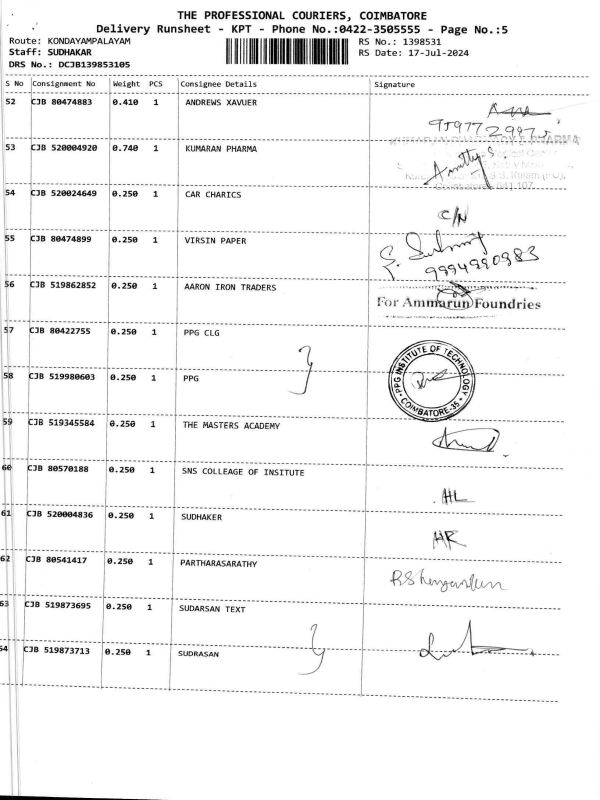 THE PROFESSIONAL COURIERS, COIMBATORE
Delivery Runsheet - KPT - Phone No.:0422-3505555 - Page No.:5
Route: KONDAYAMPALAYAM RS No.: 1398531
Staff: SUDHAKAR RS Date: 17-Jul-2024
DRS No.: DCJB139853105
S No Consignment No Weight PCS Consignee Details Signature
52 CJB 80474883 0.410 1 ANDREWS XAVUER
53 CJB 520004920 0.740 1 KUMARAN PHARMA
54 CJB 520024649 0.250 1 CAR CHARICS
C/N
55 CJB 80474899 0.250 1 VIRSIN PAPER
9994990983
56 CJB 519862852 0.250 1 AARON IRON TRADERS
For Ammarun Foundries
57 CJB 80422755 0.250 1 PPG CLG
PPG INSTITUTE OF TECHNOLOGY
COIMBATORE-35
58 CJB 519980603 0.250 1 PPG
59 CJB 519345584 0.250 1 THE MASTERS ACADEMY
60 CJB 80570188 0.250 1 SNS COLLEAGE OF INSITUTE
HL
61 CJB 520004836 0.250 1 SUDHAKER
HR
62 CJB 80541417 0.250 1 PARTHARASARATHY
63 CJB 519873695 0.250 1 SUDARSAN TEXT
54 CJB 519873713 0.250 1 SUDRASAN